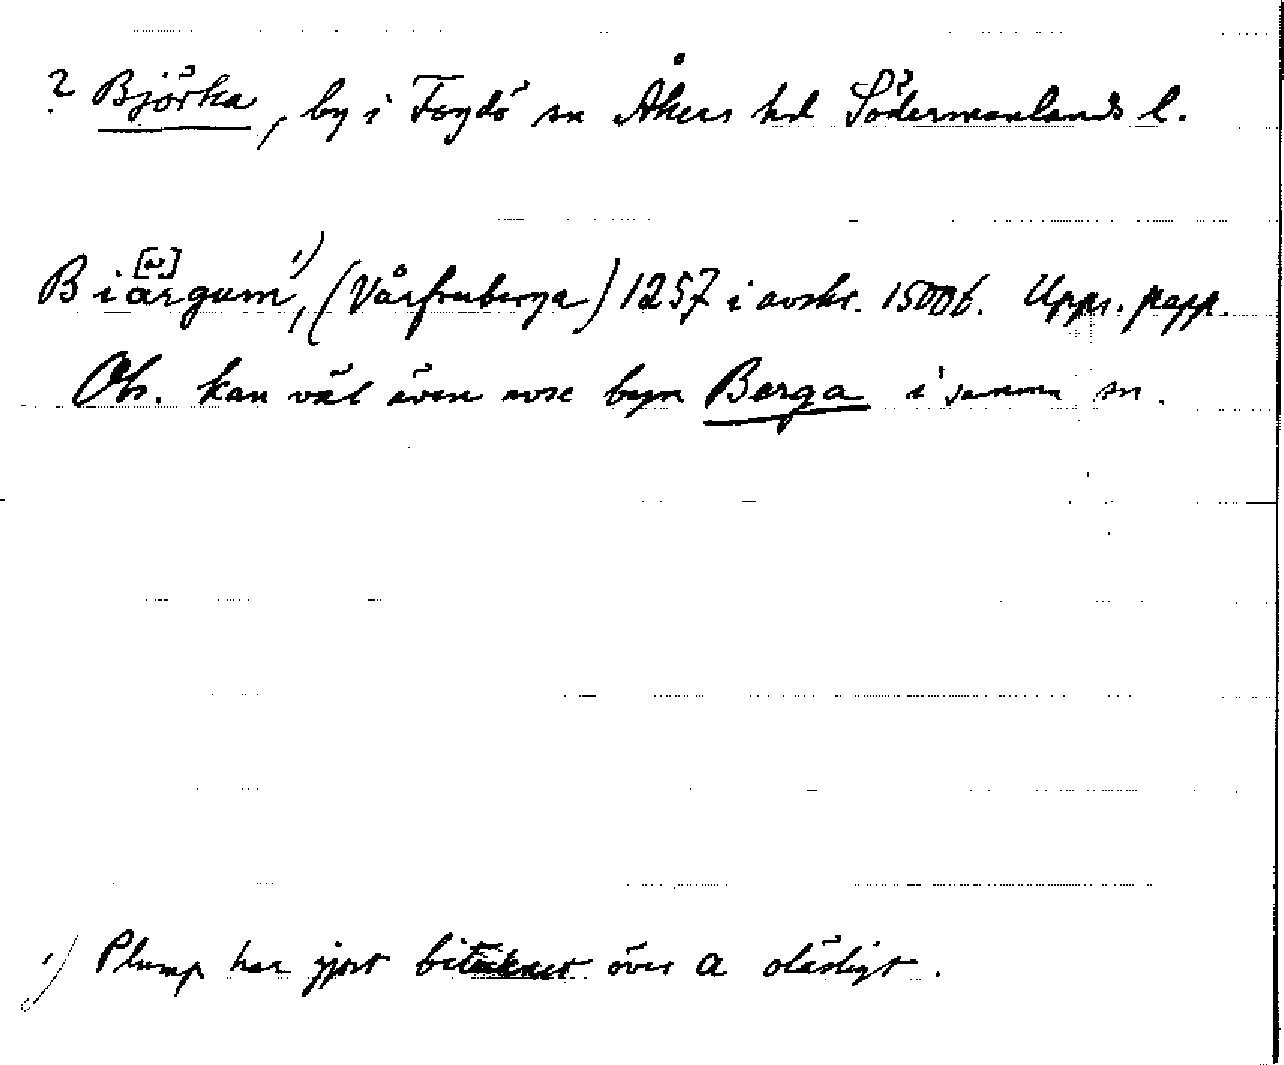 ? Björka, by i Fogdö sn Åkers hd Södermanlands l.
Biärgum¹⁾, (Vårfruberga) 1257 i avskr. 1500b. Upps. papp.
Obs. kan väl även avse byn Berga i samma sn.
¹⁾ Plump har gjort bitecknet över a oläsligt.